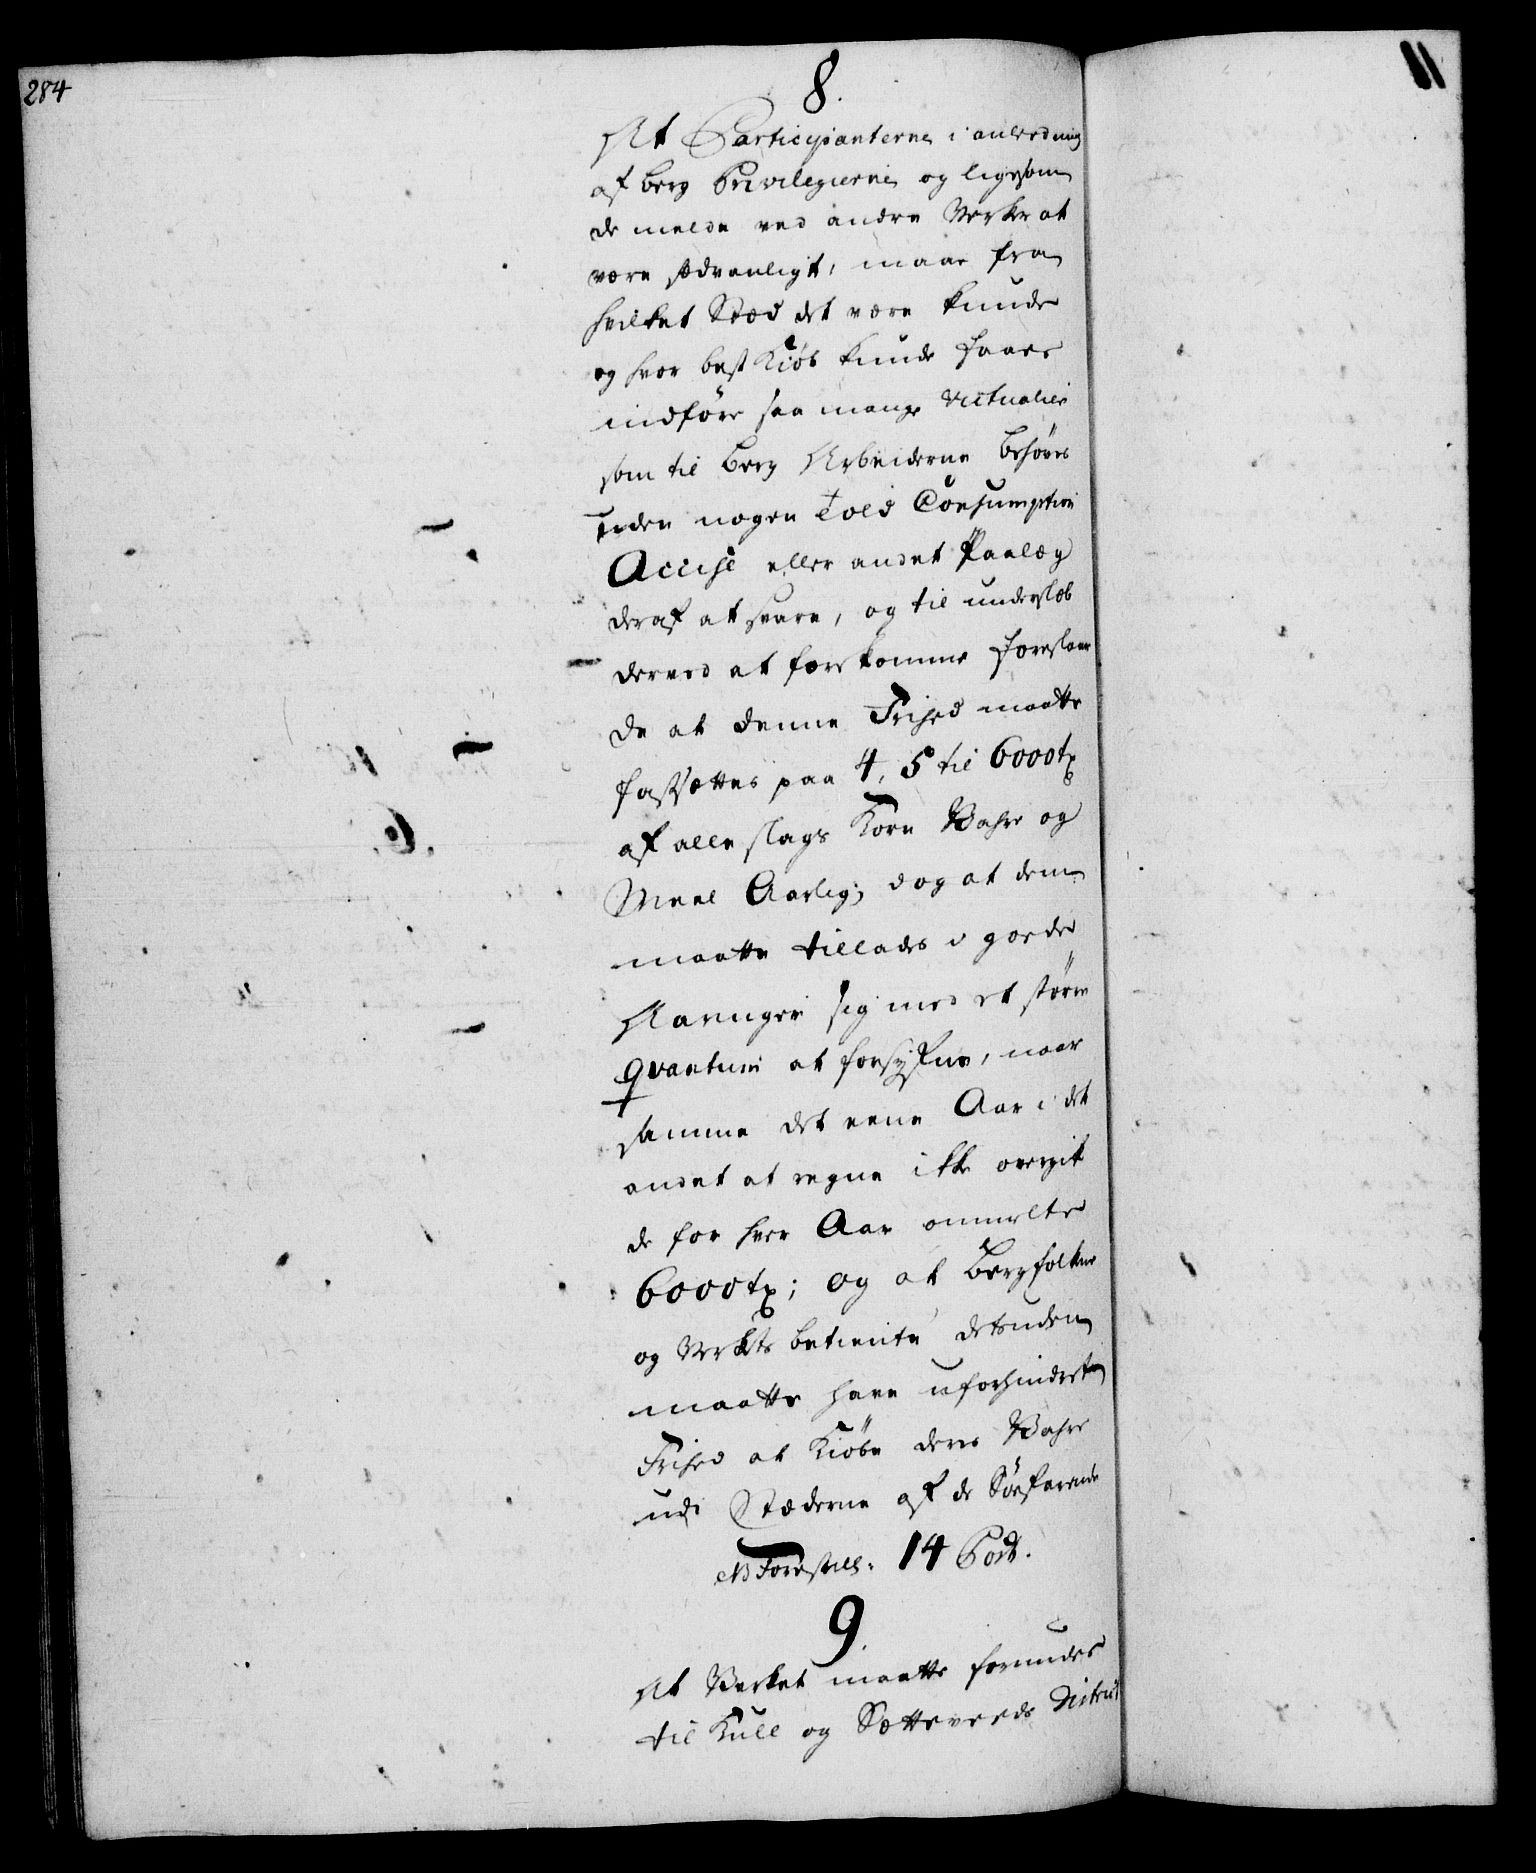 284
8.
At Participanterne i anledning
af berg Privilegierne og ligesom
de melde ved andre Verker at
være sædvanligt, maae fra
hvilket Stæd det være kunde
og hvor best Kiøb kunde haaves
indføre saa mange Victualier
som til berg Arbeiderne behøves
uden nogen Told Consumption
Accise eller andet Paalæg
deraf at svare, og til underslæb
derved at forekomme foreslaae
de at denne Frihed maatte
fastsættes paa 4, 5 til 6000 tr
af alle slags Korn Vahre og
Meel Aarlig; dog at dem
maatte tillades i goede
Aaringer sig med et større
Qvantum at forsyfne, naar
samme det eene Aar i det
andet at regne ikke overgik
de for hver Aar anmelte
6000 tr; og at Bergfolkene
og Verkets betiente desuden
maatte have uforhindret
Frihed at Kiøbe deres Vahre
udi Stæderne af de Søefarende
NB Forestill: 14 Post.
9.
At Verket maatte forundes
til Kull og Sætteveeds